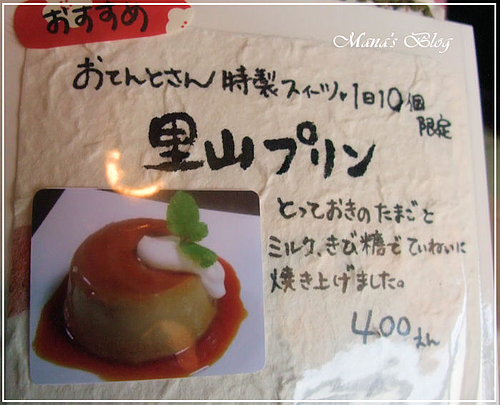 おすすめ
Mana's Blog
おてんとさん 特製スイーツ♥1日10個
限定
里山プリン
とっておきのたまごと
ミルク、きび糖でていねいに
焼き上げました。
400えん